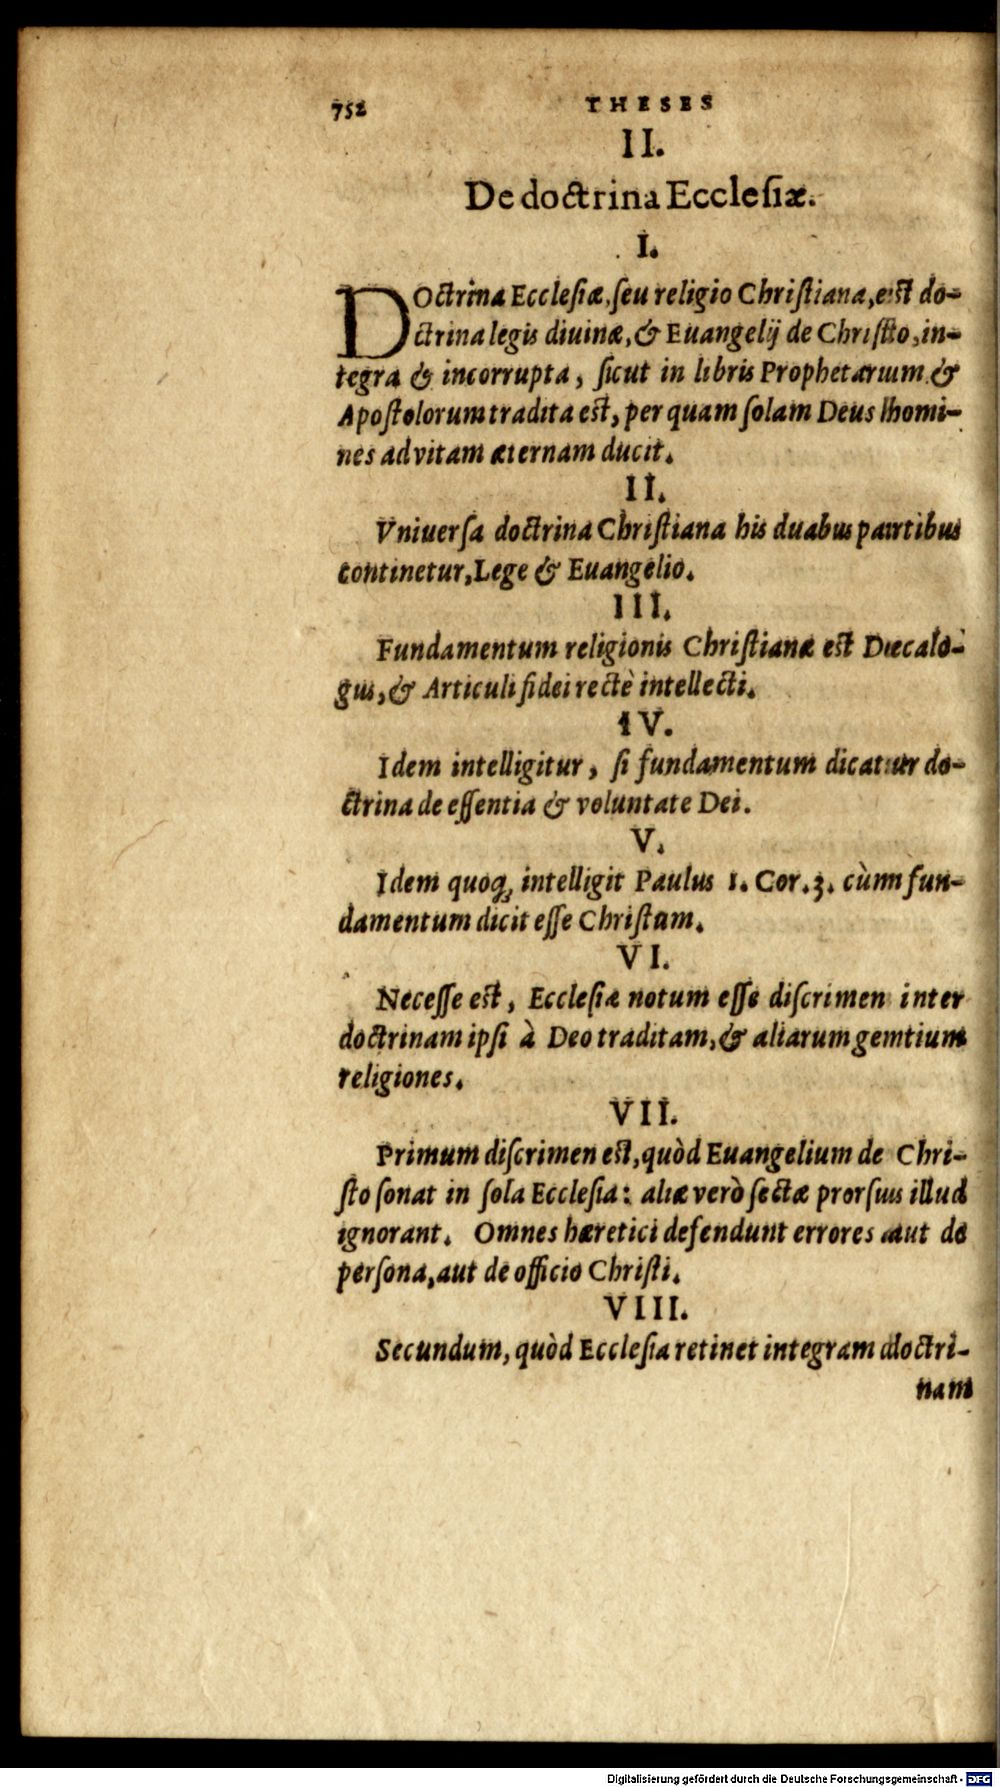 752 THESES
II.
De doctrina Ecclesiæ.
I.
DOctrina Ecclesiæ, ſeu religio Chriſtiana, est do-
ctrina legis diuinæ, & Euangelij de Chriſto, in-
tegra & incorrupta, ſicut in libris Prophetarum &
Apoſtolorum tradita est, per quam ſolam Deus homi-
nes ad vitam æternam ducit.
II.
Vniuerſa doctrina Chriſtiana his duabus partibus
continetur, Lege & Euangelio.
III.
Fundamentum religionis Chriſtianæ est Decalo-
gus, & Articuli fidei rectè intellecti.
IV.
Idem intelligitur, ſi fundamentum dicatur do-
ctrina de eſſentia & voluntate Dei.
V.
Idem quoq; intelligit Paulus 1. Cor. 3. cùm fun-
damentum dicit eſſe Chriſtum.
VI.
Neceſſe est, Eccleſiæ notum eſſe diſcrimen inter
doctrinam ipſi à Deo traditam, & aliarum gentium
religiones.
VII.
Primum diſcrimen est, quòd Euangelium de Chri-
ſto ſonat in ſola Eccleſia: aliæ verò ſectæ prorſus illud
ignorant. Omnes hæretici defendunt errores aut de
perſona, aut de officio Chriſti.
VIII.
Secundum, quòd Eccleſia retinet integram doctri-
nam
Digitalisierung gefördert durch die Deutsche Forschungsgemeinschaft - DFG